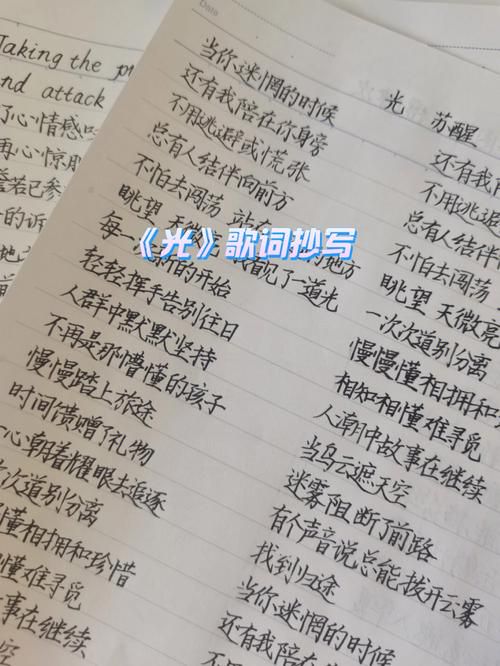 Date
Taking the
nd attack
了心情感
再心惊
若已参
的诉
当你迷惘的时候
还有我陪在你身旁
不用逃避或慌张
总有人结伴向前方
不怕去闯荡 站在 地方
眺望 天微 看见了一道光
每一 的开始
轻轻挥手告别往日
人群中默默坚持
不再是那懵懂的孩子
慢慢踏上旅途
时间馈赠了礼物
一心朝着耀眼去追逐
次道别分离
懂相拥和珍惜
懂难寻觅
事在继续
空
光 苏醒
还有我
不用逃避
总有人结伴
不怕去闯荡
眺望 天微亮
一次次道别分离
慢慢懂相拥和
相知相懂难寻觅
人潮中故事在继续
当乌云遮天空
迷雾阻断了前路
有个声音说总能拨开云雾
找到归途
当你迷惘的时候
还有我陪在
《光》歌词抄写